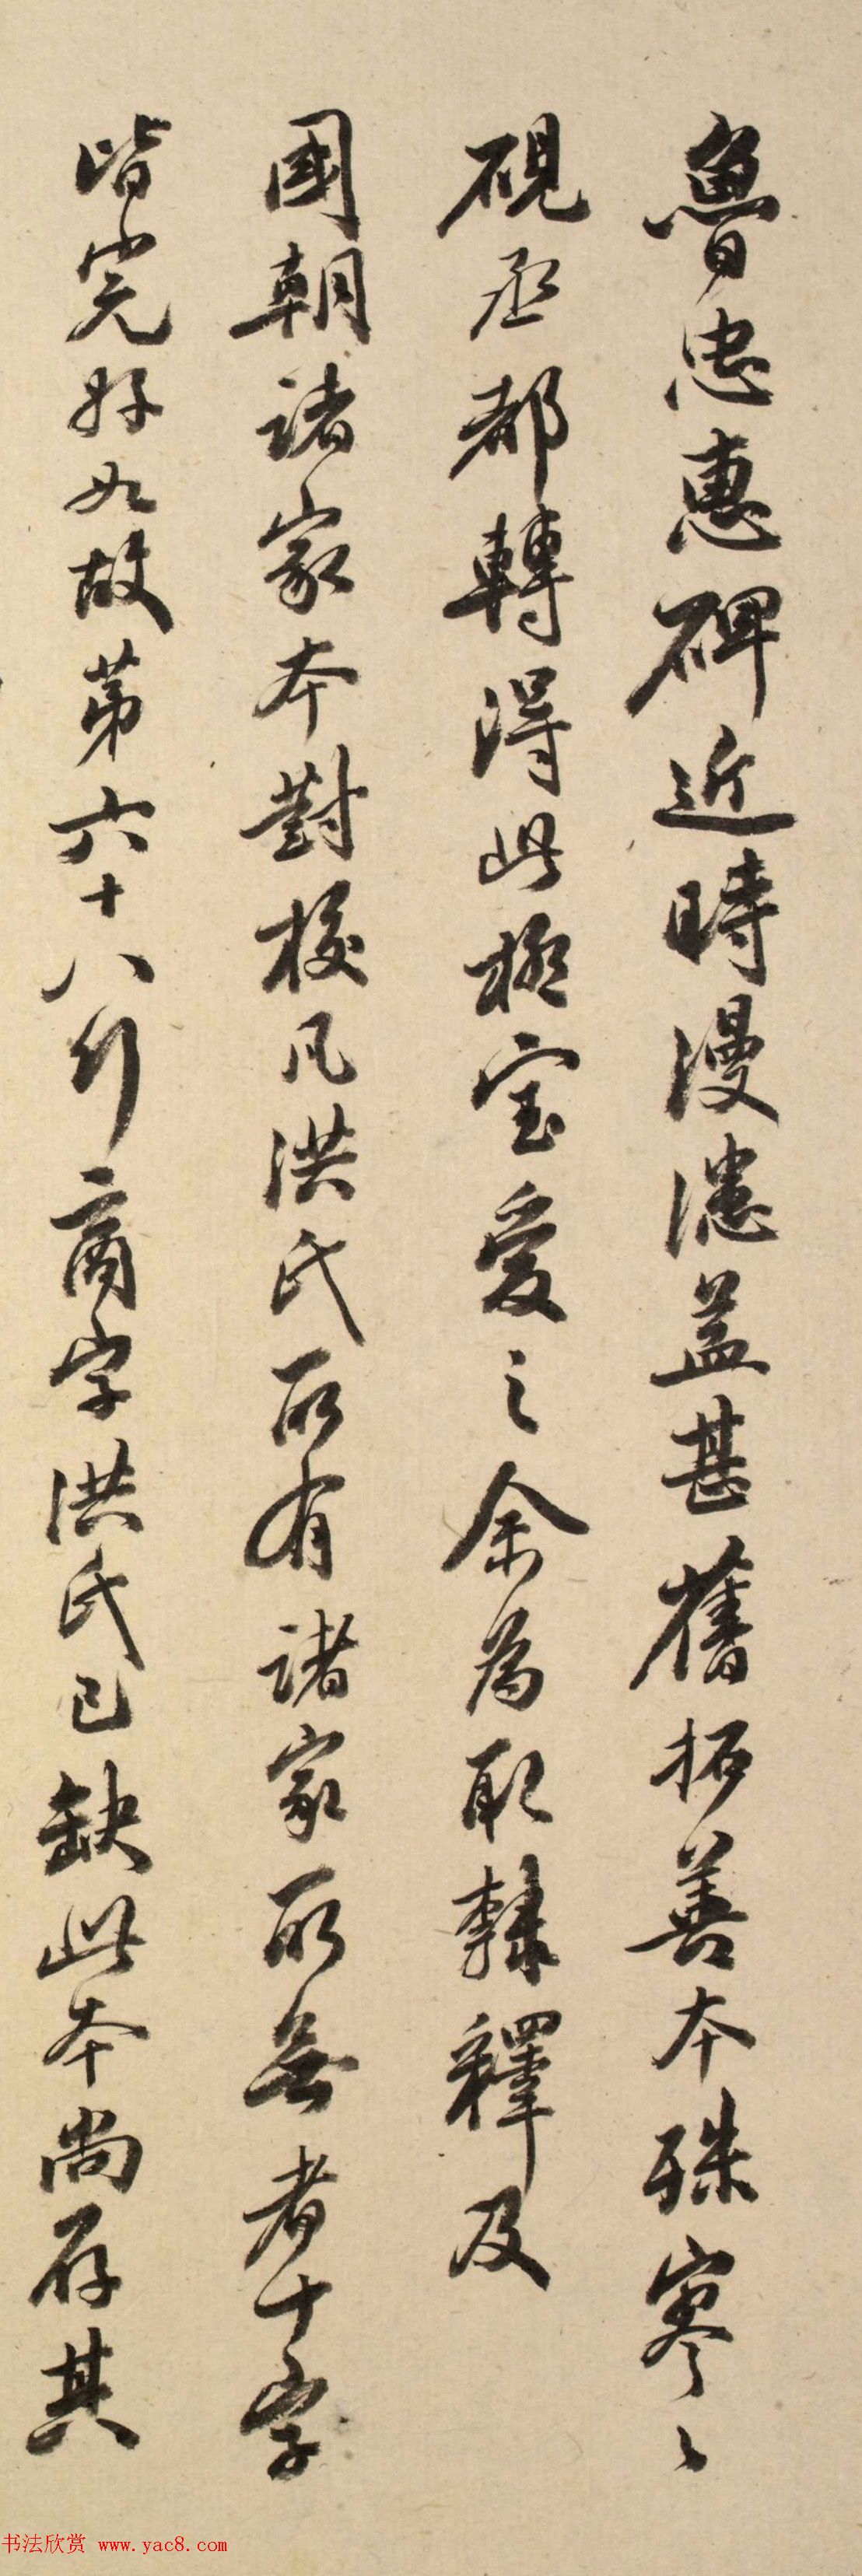 魯忠惠碑近時漫漶益甚舊拓善本殊寥〻
硯丞都轉得此極宝愛之余為取隸釋及
國朝諸家本對校凡洪氏所有諸家所無者十字
皆完好如故苐六十八行商字洪氏已缺此本尚存其
书法欣赏 www.yac8.com